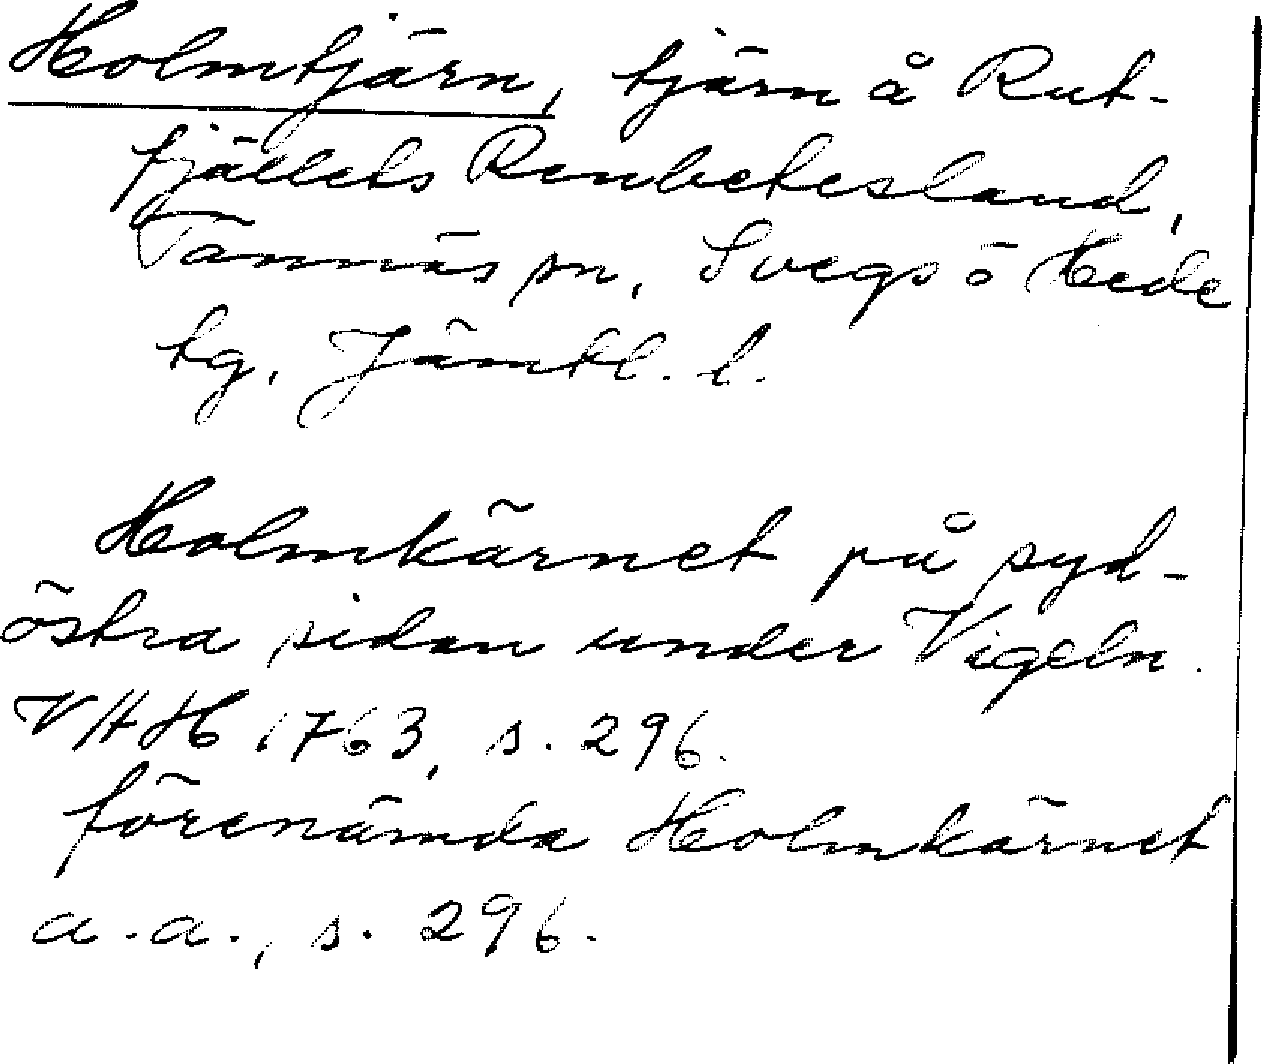 Holmtjärn, tjärn å Rut-
fjällets Renbetesland,
Tännäs sn, Svegs o Hede
tg, Jämtl. l.
Holmkärnet på syd-
östra sidan under Vigeln.
VHH 1763, s. 296.
förenämda Holmkärnet
a.a., s. 296.